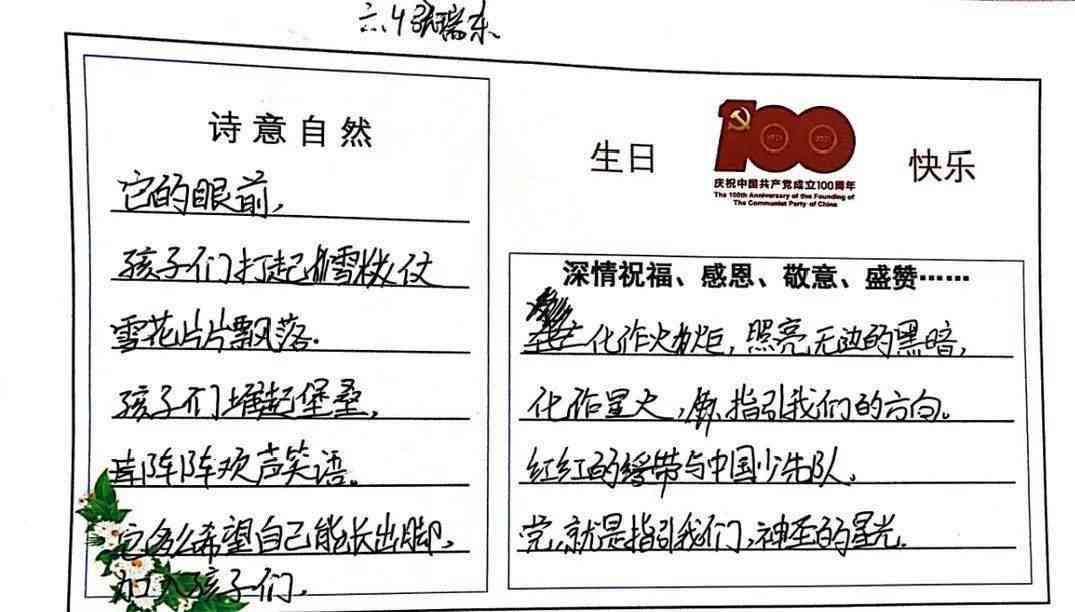 六.4 张瑞东
诗意自然
它的眼前,
孩子们打起雪仗
雪花片片飘落.
孩子们堆起堡垒,
阵阵欢声笑语。
它多么希望自己能长出脚,
加入孩子们.
生日
100
快乐
庆祝中国共产党成立100周年
The 100th Anniversary of the Founding of
The Communist Party of China
深情祝福、感恩、敬意、盛赞……
化作火炬，照亮无边的黑暗,
化作星火，你指引我们的方向。
红红的绶带与中国少先队.
党,就是指引我们,神圣的星光.